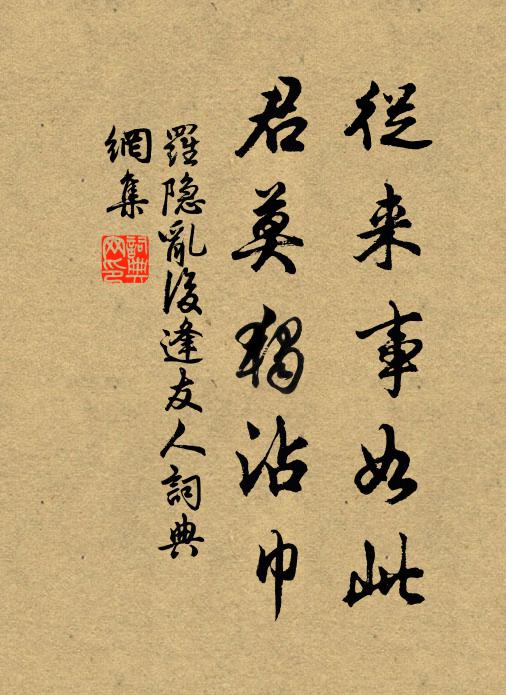 從来事如此
君莫獨沾巾
羅隐亂後逢友人詞典
網集
詞典
网印